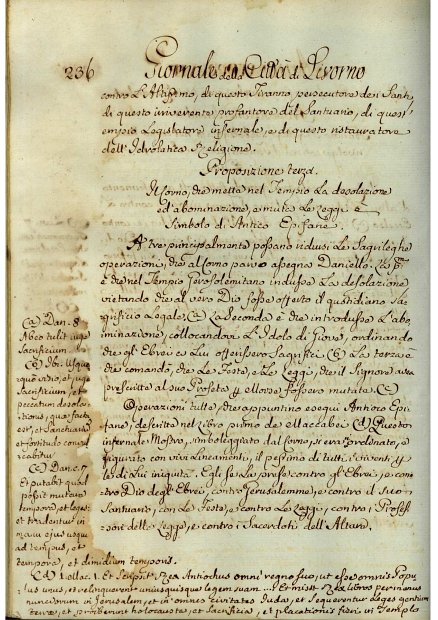 236 Giornale della Città di Livorno
contro L'Altissimo, di questo Tiranno persecutore dei Santi,
di questo irriverente profanatore del Santuario, di quest'
empio Legislatore infernale, e di questo ristauratore
dell'Idolatica Religione.
Proposizione terza.
Il corno, che mette nel Tempio La desolazione
ed abominazione, e muta Le Leggi è
Simbolo di Antioco Epifane
A tre principalmente possono ridursi Le Sagrileghe
operazioni, che al corno parvo assegna Daniello. La p.ª
è che nel Tempio Jerosolimitano indusse La desolazione
vietando che al vero Dio fosse offerto il quotidiano Sa-
grificio Legale; (a) La Seconda è che introdusse L'abo-
minazione, collocandovi L'Idolo di Giove, ordinando
che gl'Ebrei a Lui offerissero Sagrifici (b) La terza è
che comando, che Le Feste, e Le Leggi, che il Signore avea
prescritte al suo Profeta Moisè fossero mutate. (c)
Operazioni tutte, che appuntino eseguì Antioco Epi-
fane, descritte nel libro primo de Maccabei (d) Questo
infernale Mostro, simboleggiato dal corno, si era profetato, e
figurito con vivi Lineamenti, il pessimo di tutti i viventi, e
le di Lui iniquità. Egli se La prese contro gl'Ebrei, e con-
tro Dio degl'Ebrei, contro Jerusalemme, e contro il suo
Santuario, con Le Feste, e contro Le Leggi, contro i Profes-
sori delle Legge, e contro i Sacerdoti dell'Altare.
(a) Dan. 8
Ab eo tulit juge
Sacrificium.
(b) Ib. Usque
quo visio, et juge
Sacrificium, et
peccatum desola-
tionis, quae facta
est, et Sanctuarium
et fortitudo concul-
cabitur
(c) Dan. c. 7
Et putabit quod
possit mutare
tempora, et Leges:
et tradentur in
manu ejus usque
ad tempus, et
tempora, et dimidium temporis.
(d) Macac. 1. Et scripsit Rex Antiochus omni regno suo, ut esset omnis Popu-
lus unus, et relinqueret unusquisque legem suam ... Et misit Rex libros per manus
nunciorum in Jerusalem, et in omnes civitates Judae, et sequerentur Leges gentium
terrae, et prohiberent holocausta, et Sacrificia, et placationes fieri in Templo